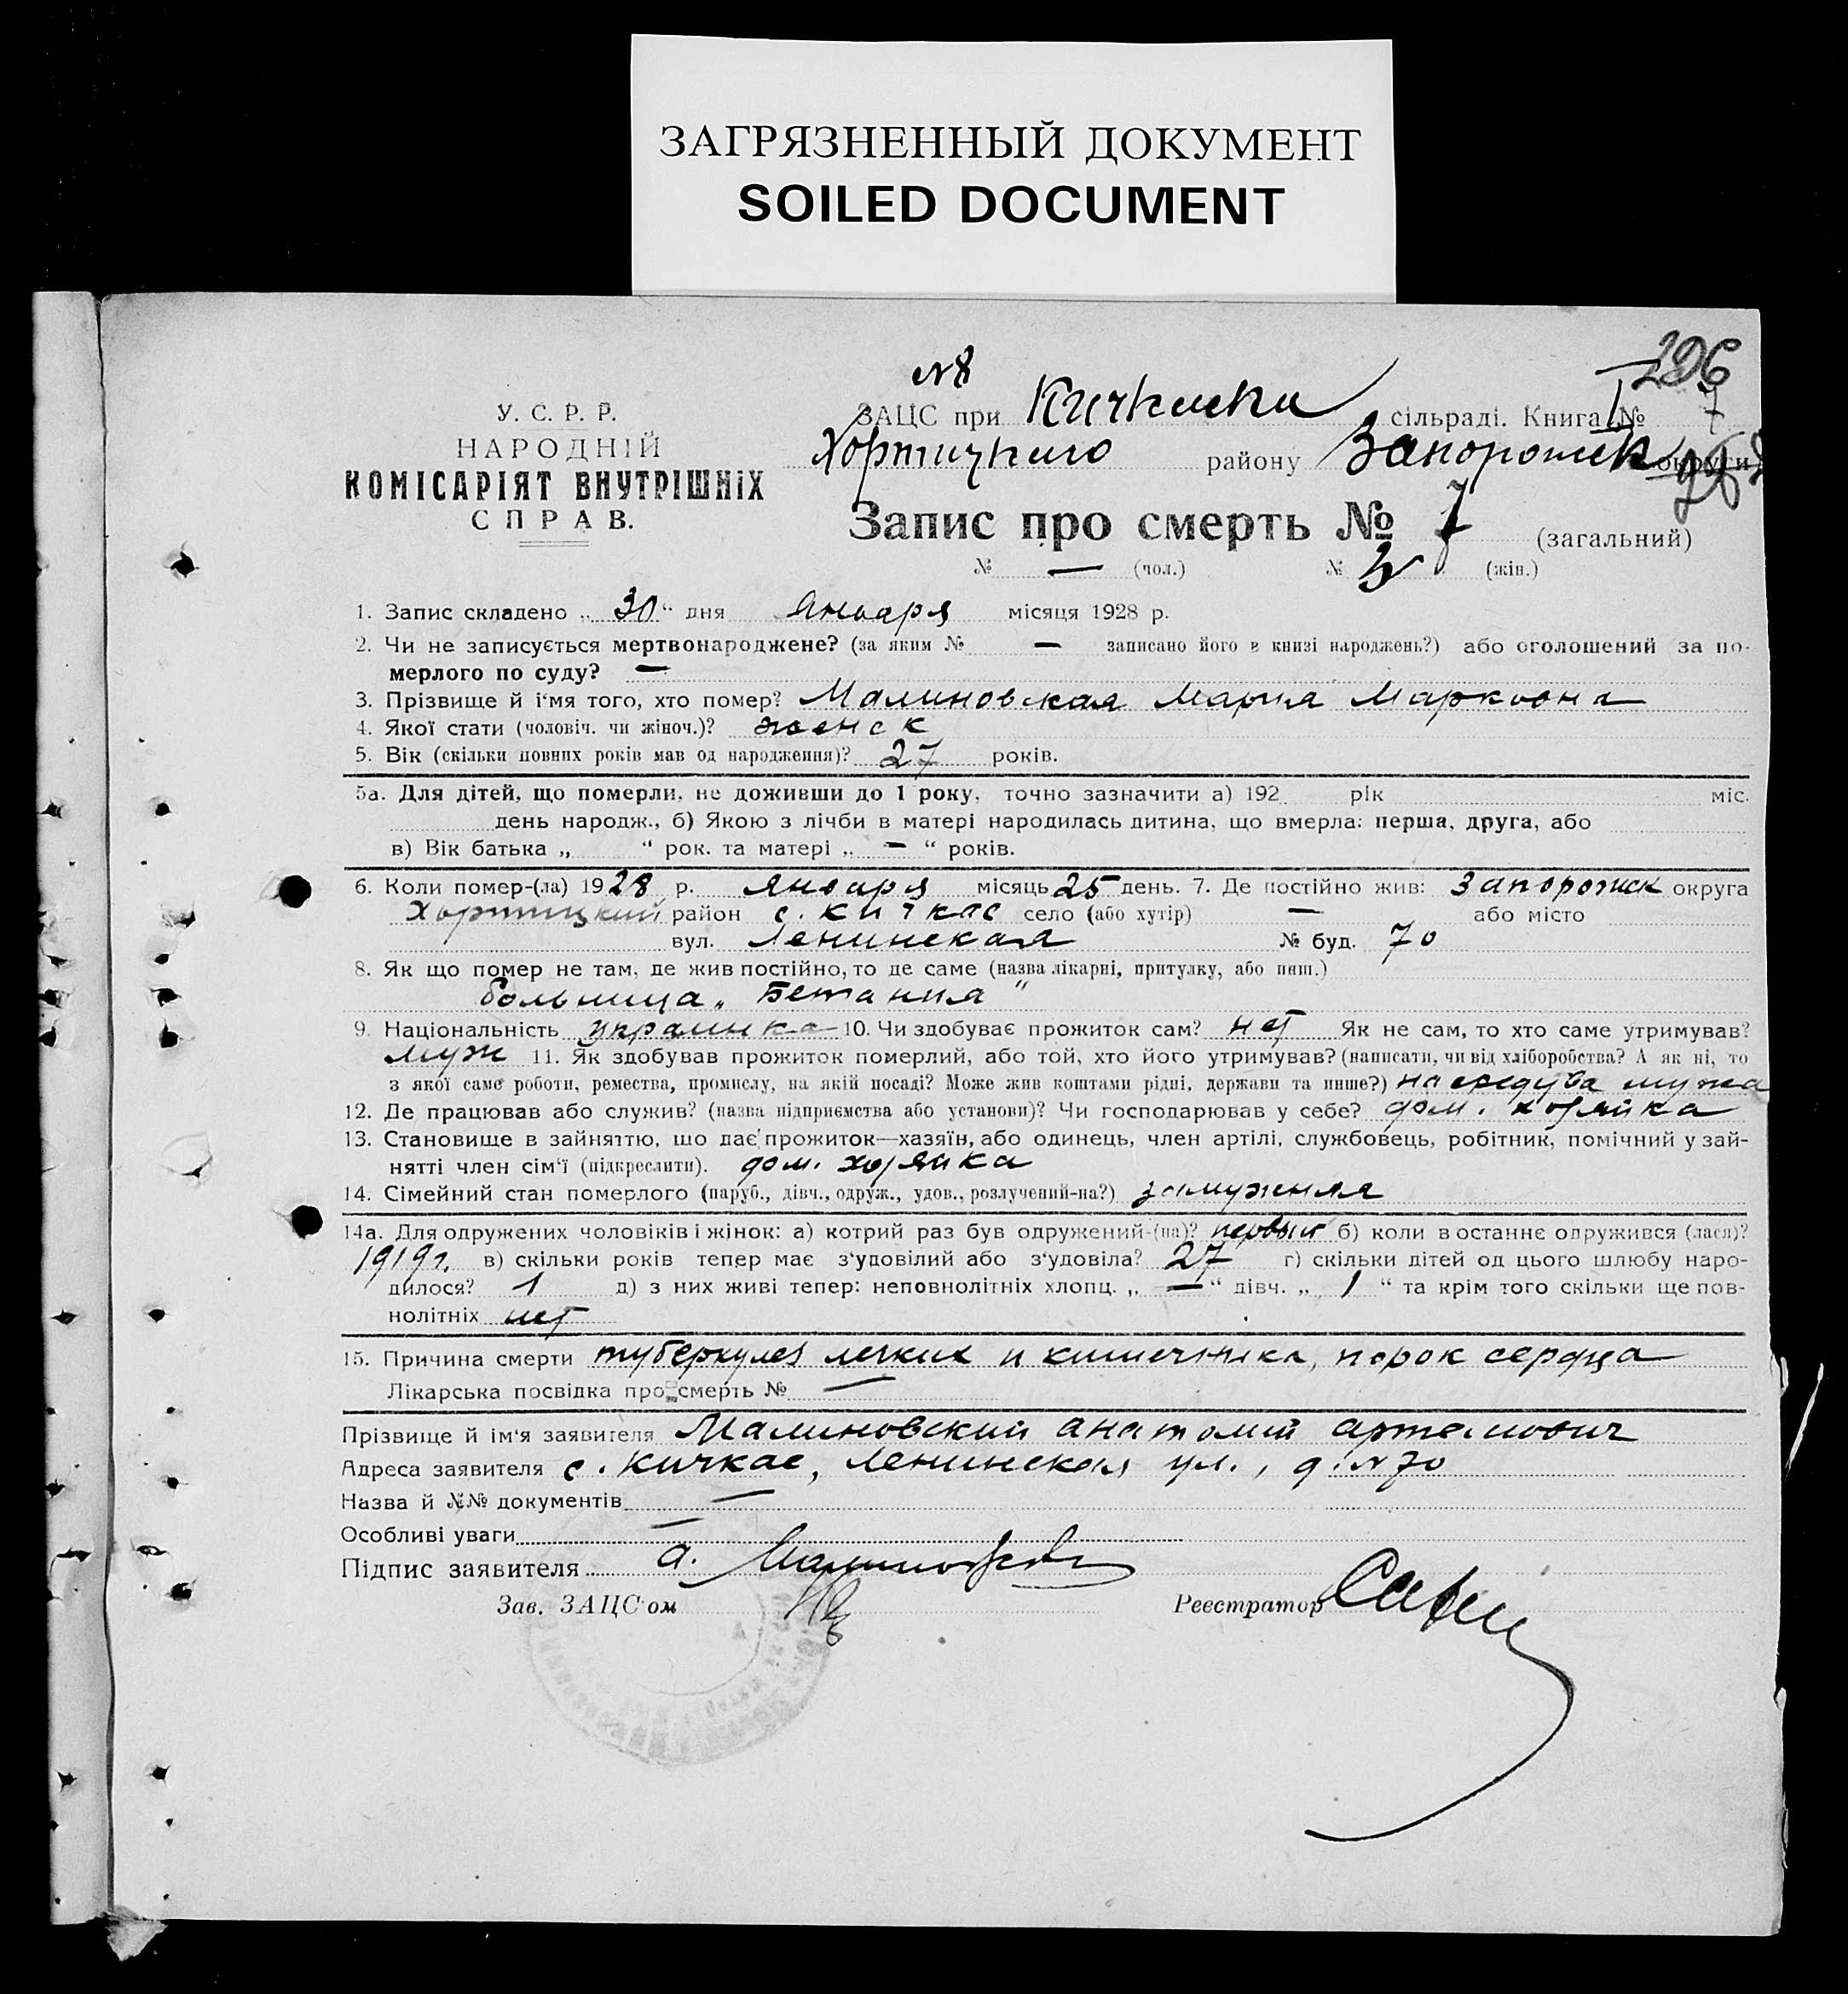 ЗАГРЯЗНЕННЫЙ ДОКУМЕНТ
SOILED DOCUMENT
№8
206
У. С. Р. Р.
НАРОДНІЙ
КОМІСАРІЯТ ВНУТРІШНІХ
СПРАВ.
ЗАЦС при Кичкаски сільраді. Книга I № 7
Хортицкого району Запорожск округи
Запис про смерть № 7 (загальний)
№ — (чол.) № (жін.)
1. Запис складено „ 30 “ дня Января місяця 1928 р.
2. Чи не записується мертвонароджене? (за яким № — записано його в книзі народжень?) або оголошений за по-
мерлого по суду? —
3. Прізвище й і'мя того, хто помер? Малиновская Мария Марковна
4. Якої стати (чоловіч. чи жіноч.)? женск
5. Вік (скільки повних років мав од народження)? 27 років.
5а. Для дітей, що померли, не доживши до 1 року, точно зазначити а) 192 рік міс.
день народж., б) Якою з лічби в матері народилась дитина, що вмерла: перша, друга, або
в) Вік батька „ “ рок. та матері „ — “ років.
6. Коли помер-(ла) 1928 р. января місяць 25 день. 7. Де постійно жив: Запорожск округа
Хортицкий район с. Кичкас село (або хутір) — або місто
вул. Ленинская № буд. 70
8. Як що помер не там, де жив постійно, то де саме (назва лікарні, притулку, або инш.)
больница „Бетания“
9. Національність украинка 10. Чи здобуває прожиток сам? нет Як не сам, то хто саме утримував?
муж 11. Як здобував прожиток померлий, або той, хто його утримував? (написати, чи від хліборобства? А як ні, то
з якої саме роботи, ремества, промислу, на якій посаді? Може жив коштами рідні, держави та инше?) на мужа
12. Де працював або служив? (назва підприємства або установи)? Чи господарював у себе? дом. хозяйка
13. Становище в зайняттю, що дає прожиток—хазяїн, або одинець, член артілі, службовець, робітник, помічний у зай-
нятті член сім'ї (підкреслити). дом. хозяйка
14. Сімейний стан померлого (паруб., дівч., одруж., удов., розлучений-на?) замужняя
14а. Для одружених чоловіків і жінок: а) котрий раз був одружений-(на)? первый б) коли в останнє одружився (лася)?
1919 г. в) скільки років тепер має з'удовілий або з'удовіла? 27 г) скільки дітей од цього шлюбу наро-
дилося? 1 д) з них живі тепер: неповнолітніх хлопц. „ — “ дівч. „ 1 “ та крім того скільки ще пов-
нолітніх нет
15. Причина смерти туберкулез легких и кишечника, порок сердца
Лікарська посвідка про смерть № —
Прізвище й ім'я заявителя Малиновский Анатолий Артемович
Адреса заявителя с. Кичкас, Ленинская ул., д. № 70
Назва й №№ документів —
Особливі уваги —
Підпис заявителя А. Малиновский
Зав. ЗАЦС'ом
Реєстратор